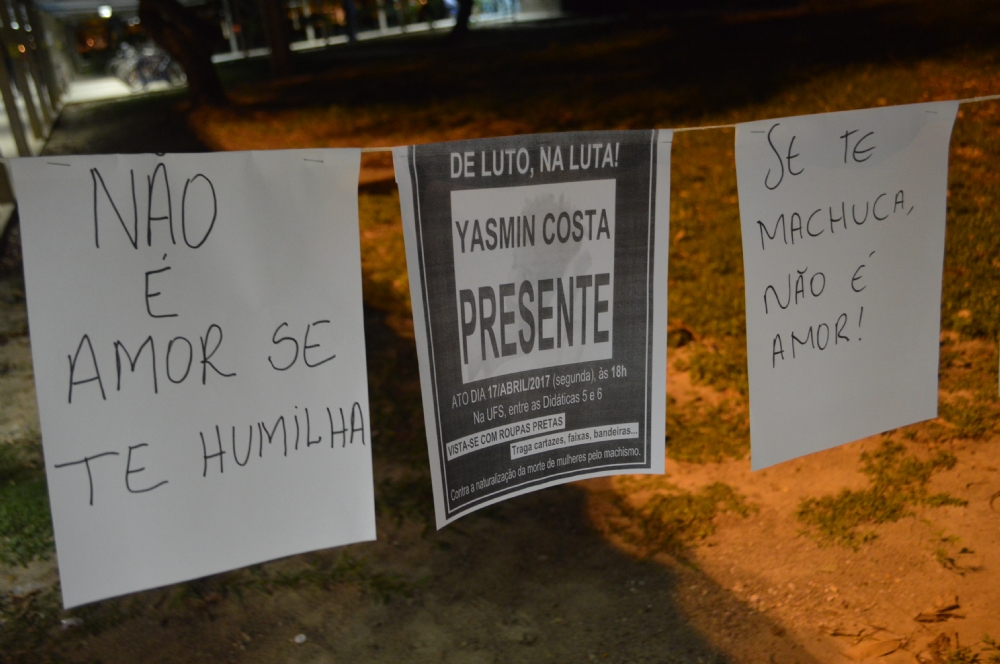 NÃO
É
AMOR SE
TE HUMILHA
DE LUTO, NA LUTA!
YASMIN COSTA
PRESENTE
ATO DIA 17/ABRIL/2017 (segunda), às 18h
Na UFS, entre as Didáticas 5 e 6
VISTA-SE COM ROUPAS PRETAS
Traga cartazes, faixas, bandeiras...
Contra a naturalização da morte de mulheres pelo machismo.
SE TE
MACHUCA,
NÃO É
AMOR!